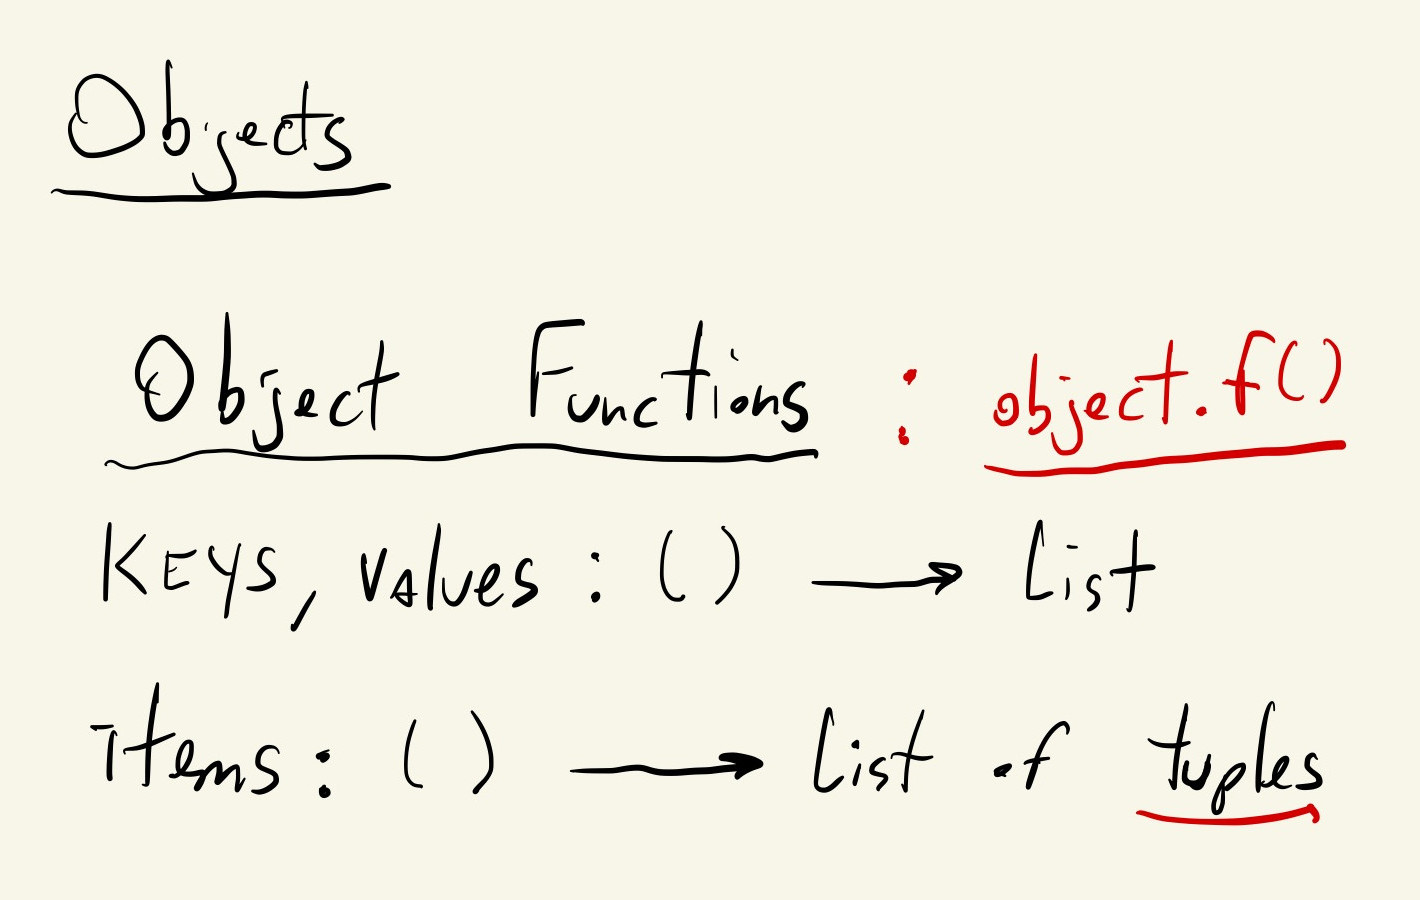 Objects
Object Functions : object.f()
KEYS, values : () → List
items : () → List of tuples